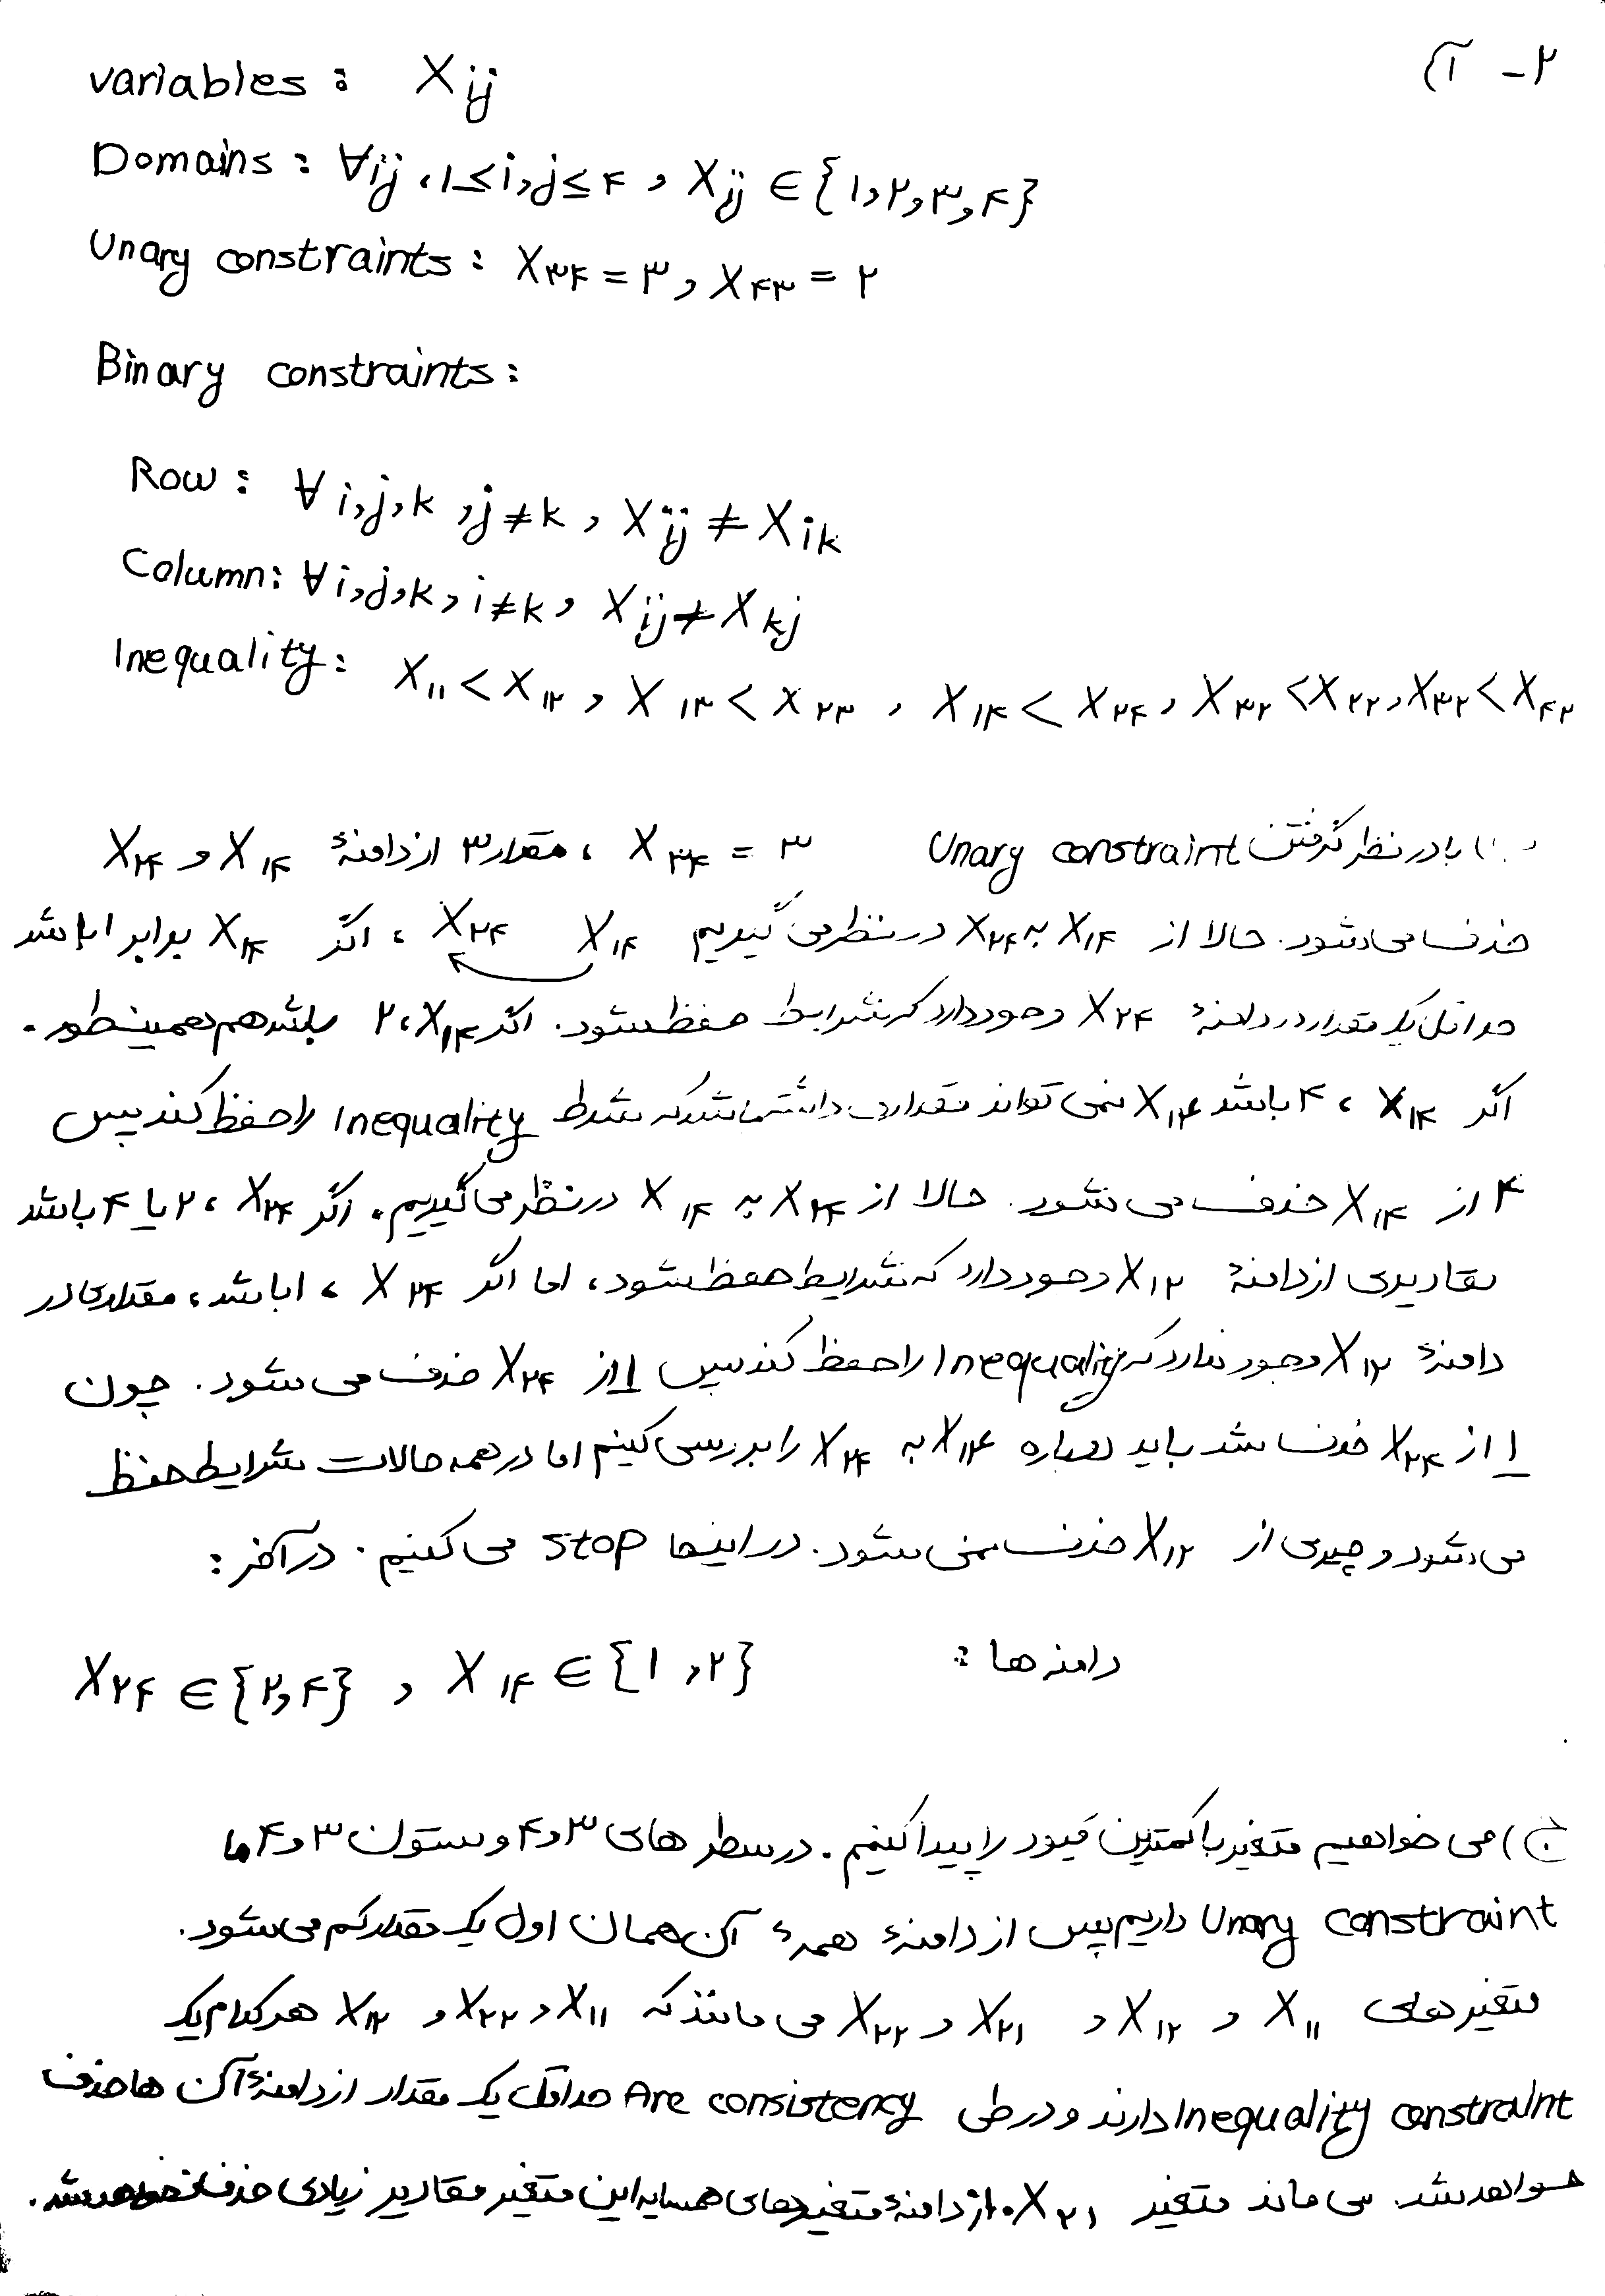 ۲- آ)
variables : X ij
Domains : ∀ij ، ۱≤i,j≤۴ , X ij ∈ {۱,۲,۳,۴}
Unary constraints : X ۳۴ = ۳ , X ۴۳ = ۲
Binary constraints :
Row : ∀ i,j,k , j≠k , X ij ≠ X ik
Column : ∀ i,j,k , i≠k , X ij ≠ X kj
Inequality : X ۱۱ < X ۱۲ , X ۱۳ < X ۲۳ , X ۱۴ < X ۲۴ , X ۳۲ < X ۲۲ , X ۳۲ < X ۴۲
ب) با در نظر گرفتن Unary constraint X ۳۴ = ۳ ، مقدار ۳ از دامنهٔ X ۱۴ و X ۲۴
حذف می‌شود. حالا از X ۱۴ به X ۲۴ در نظر می گیریم X ۱۴ X ۲۴ ، اگر X ۱۴ برابر ۱ باشد
حداقل یک مقدار در دامنهٔ X ۲۴ وجود دارد که شرایط حفظ شود. اگر X ۱۴ ، ۲ باشد هم همینطور.
اگر X ۱۴ ، ۴ باشد X ۲۴ نمی تواند مقداری داشته باشد که شرط Inequality را حفظ کند پس
۴ از X ۱۴ حذف می شود. حالا از X ۲۴ به X ۱۴ در نظر می گیریم. اگر X ۲۴ ، ۲ یا ۴ باشد
مقادیری از دامنهٔ X ۱۴ وجود دارد که شرایط حفظ شود، اما اگر X ۲۴ ، ۱ باشد، مقداری در
دامنهٔ X ۱۴ وجود ندارد که Inequality را حفظ کند پس ۱ از X ۲۴ حذف می شود. چون
۱ از X ۲۴ حذف شد باید دوباره X ۱۴ به X ۲۴ را بررسی کنیم اما در همه حالات شرایط حفظ
می‌شود و چیزی از X ۱۴ حذف نمی شود. در اینجا stop می کنیم. در آخر :
دامنه ها : X ۲۴ ∈ {۲,۴} , X ۱۴ ∈ {۱,۲}
ج) می خواهیم متغیر با کمترین قیود را پیدا کنیم. در سطر های ۳ و ۴ و ستون ۳ و ۴ ما
Unary constraint داریم پس از دامنهٔ همهٔ آن همان اول یک مقدار کم می شود.
متغیر های X ۱۱ و X ۱۲ و X ۲۱ و X ۲۲ می مانند که X ۱۱ و X ۲۲ و X ۱۲ هر کدام یک
Inequality constraint دارند و در طی Arc consistency حداقل یک مقدار از دامنهٔ آن ها حذف
خواهد شد. می ماند متغیر X ۲۱. از دامنهٔ متغیرهای همسایه این متغیر مقادیر زیادی حذف نخواهد شد.